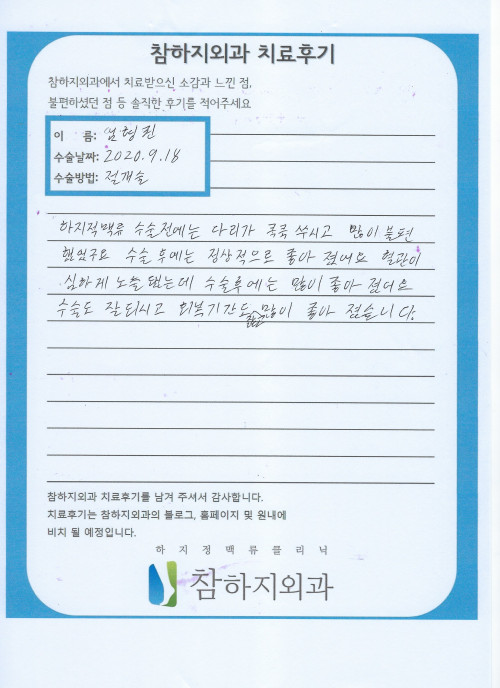 참하지외과 치료후기
참하지외과에서 치료받으신 소감과 느낀 점,
불편하셨던 점 등 솔직한 후기를 적어주세요
이 름: 엄형진
수술날짜: 2020.9.18
수술방법: 절개술
하지정맥류 수술전에는 다리가 쿡쿡 쑤시고 많이 불편
했었구요 수술 후에는 정상적으로 좋아 졌어요 혈관이
심하게 노출 됐는데 수술후에는 많이 좋아 졌어요
수술도 잘되시고 회복기간도 많이 좋아 졌습니다.
참하지외과 치료후기를 남겨 주셔서 감사합니다.
치료후기는 참하지외과의 블로그, 홈페이지 및 원내에
비치 될 예정입니다.
하지정맥류클리닉
참하지외과